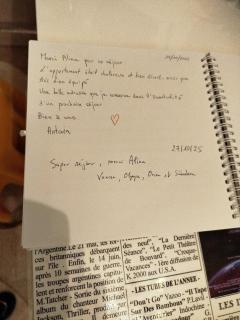 Merci Alina pour ce séjour
L'appartement était chaleureux et bien décoré, ainsi que très bien équipé
Une belle adresse que je conserve dans l'éventualité d'un prochain séjour
Bien à vous
Antoine
27/10/25
Super séjour, merci Alina
l'Argentine. Le 21 mai, les for-
ces britanniques débarquent
sur l'île. Enfin, le 14 juin,
après 10 semaines de guerre,
les troupes argentines capitu-
lent et renforcent la position de
M.Tatcher - Sortie du sixième
album du chanteur Michael
Jackson, Thriller, produit
des neuf", "La Dernière
Séance", "Le Petit Théâtre
de Bouvard", "Croque-
Vacances" - 1ère diffusion de
K 2000 aux U.S.A.
- LES TUBES DE L'ANNEE -
"Don't Go" Yazoo - "Il Tape
Sur Des Bambous" P.Lavil